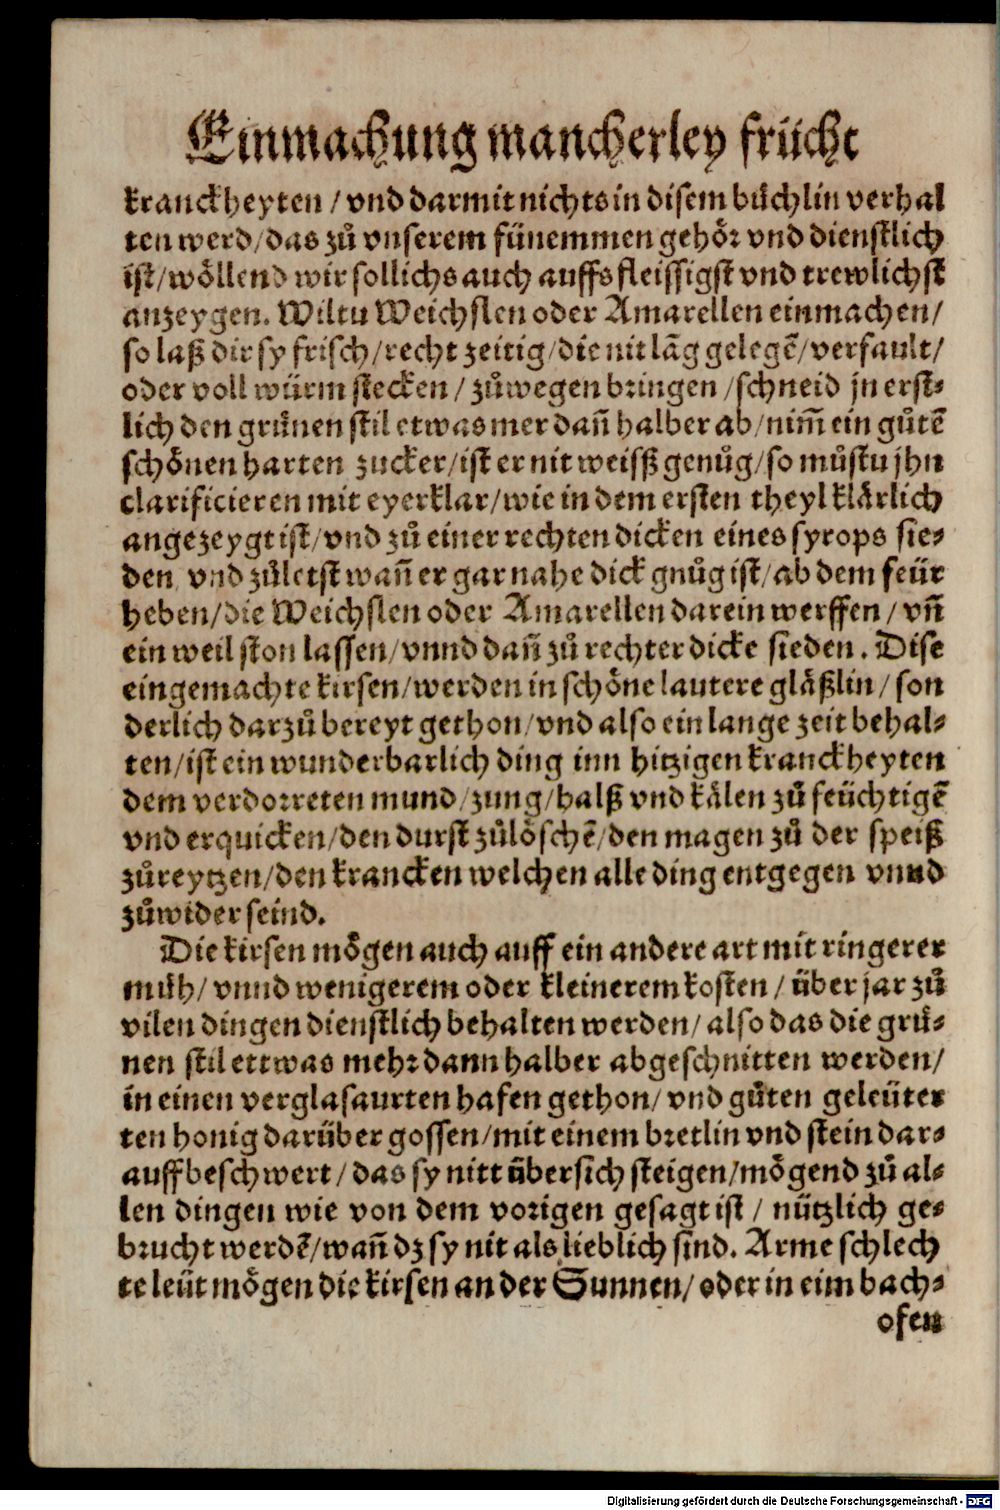 Einmachung mancherley frücht
kranckheyten / vnd darmit nichts in disem bůchlin verhal
ten werd / das zů vnserem fünemmen gehör vnd dienstlich
ist / wöllend wir sollichs auch auffs fleissigst vnd trewlichst
anzeygen. Wiltu Weichslen oder Amarellen einmachen /
so laß dir sy frisch / recht zeitig / die nit lãg gelegẽ / verfault /
oder voll würm stecken / zůwegen bringen / schneid jn erst⸗
lich den grůnen stil etwas mer dañ halber ab / nim̃ ein gůtẽ
schönen harten zucker / ist er nit weisß genůg / so můstu jhn
clarificieren mit eyerklar / wie in dem ersten theyl klårlich
angezeygt ist / vnd zů einer rechten dicken eines syrops sie⸗
den / vnd zůletst wañ er gar nahe dick gnůg ist / ab dem feür
heben / die Weichslen oder Amarellen darein werffen / vñ
ein weil ston lassen / vnnd dañ zů rechter dicke sieden. Dise
eingemachte kirsen / werden in schöne lautere gläßlin / son
derlich darzů bereyt gethon / vnd also ein lange zeit behal⸗
ten / ist ein wunderbarlich ding inn hitzigen kranckheyten
dem verdorreten mund / zung / halß vnd kälen zů feüchtigẽ
vnd erquicken / den durst zůlöschẽ / den magen zů der speiß
zůreytzen / den krancken welchen alle ding entgegen vnnd
zůwider seind.
Die kirsen mögen auch auff ein andere art mit ringerer
můh / vnnd wenigerem oder kleinerem kosten / über jar zů
vilen dingen dienstlich behalten werden / also das die grů⸗
nen stil ettwas mehr dann halber abgeschnitten werden /
in einen verglasaurten hafen gethon / vnd gůten geleüter
ten honig darüber gossen / mit einem bretlin vnd stein dar⸗
auff beschwert / das sy nitt übersich steigen / mögend zů al⸗
len dingen wie von dem vorigen gesagt ist / nützlich ge⸗
brucht werdẽ / wañ dz sy nit als lieblich sind. Arme schlech
te leüt mögen die kirsen an der Sunnen / oder in eim bach⸗
ofen
Digitalisierung gefördert durch die Deutsche Forschungsgemeinschaft - DFG